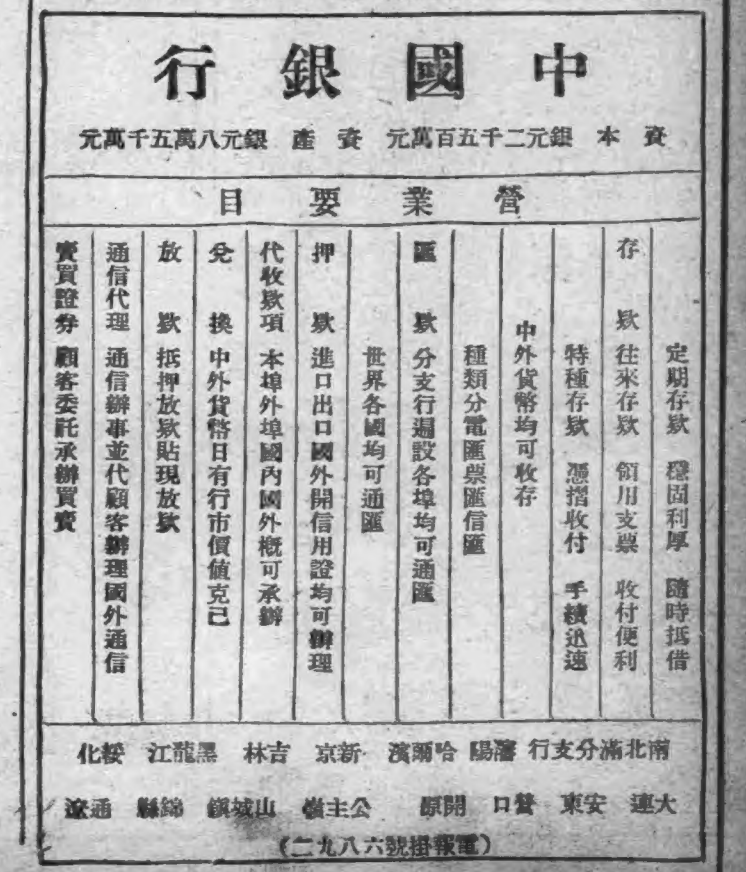 中國銀行
資本 銀元二千五百萬元 資產 銀元八萬五千萬元
營業要目
定期存欵 穩固利厚 隨時抵借
存欵 往來存欵 領用支票 收付便利
特種存欵 憑摺收付 手續迅速
中外貨幣均可收存
種類分電匯票匯信匯
匯欵 分支行遍設各埠均可通匯
世界各國均可通匯
押欵 進口出口國外開信用證均可辦理
代收欵項 本埠外埠國內國外概可承辦
兌換 中外貨幣日有行市價值克己
放欵 抵押放欵貼現放欵
通信代理 通信辦事並代顧客辦理國外通信
賣買證券 顧客委託承辦買賣
南北滿分支行 瀋陽 哈爾濱 新京 吉林 黑龍江 綏化
大連 安東 營口 開原 公主嶺 山城鎭 錦縣 通遼
(電報掛號六八九二)